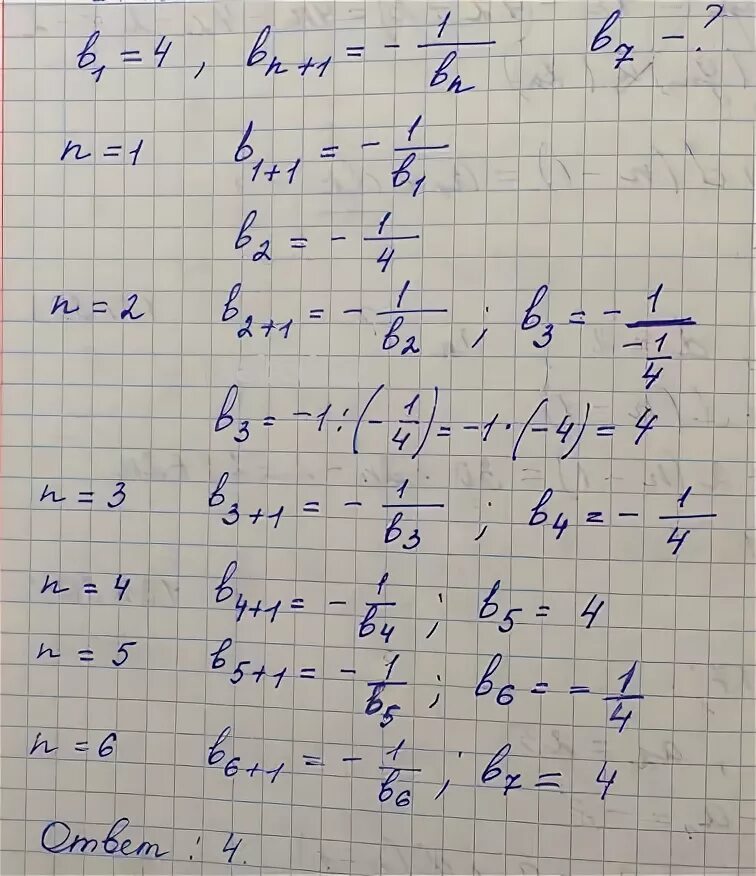 b₁ = 4 , bₙ₊₁ = - 1/bₙ b₇ - ?
n = 1 b₁₊₁ = - 1/b₁
b₂ = - 1/4
n = 2 b₂₊₁ = - 1/b₂ ; b₃ = - 1/(- 1/4)
b₃ = -1 : (- 1/4) = -1 · (-4) = 4
n = 3 b₃₊₁ = - 1/b₃ ; b₄ = - 1/4
n = 4 b₄₊₁ = - 1/b₄ ; b₅ = 4
n = 5 b₅₊₁ = - 1/b₅ ; b₆ = - 1/4
n = 6 b₆₊₁ = - 1/b₆ ; b₇ = 4
Ответ : 4.